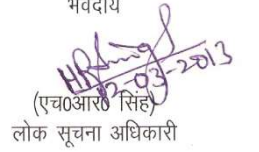 भवदीय
HRSingh
12-03-2013
(एच0आर0 सिंह)
लोक सूचना अधिकारी